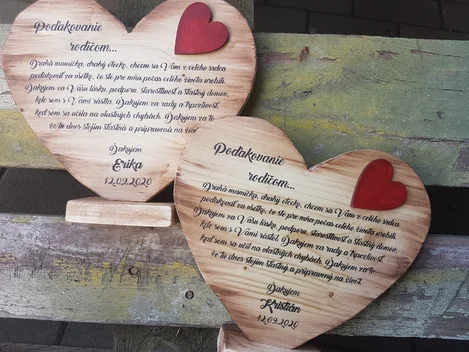 Poďakovanie
rodičom...
Drahá mamička, drahý otecko, chcem sa Vám z celého srdca
poďakovať za všetko, čo ste pre mňa počas celého života urobili.
Ďakujem za Vašu lásku, podporu, starostlivosť a šťastný domov,
kde som s Vami rástla. Ďakujem za rady a trpezlivosť,
keď som sa učila na vlastných chybách. Ďakujem za
že tu dnes stojím šťastná a pripravená na živo
Ďakujem
Erika
12.09.2020
Poďakovanie
rodičom...
Drahá mamička, drahý otecko, chcem sa Vám z celého srdca
poďakovať za všetko, čo ste pre mňa počas celého života urobili.
Ďakujem za Vašu lásku, podporu, starostlivosť a šťastný domov,
kde som s Vami rástol. Ďakujem za rady a trpezlivosť,
keď som sa učil na vlastných chybách. Ďakujem za to,
že tu dnes stojím šťastný a pripravený na život.
Ďakujem
Kristián
12.09.2020